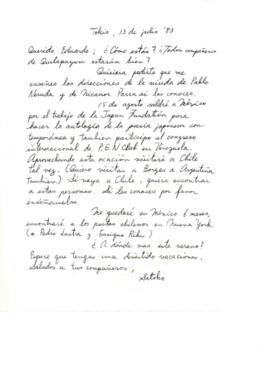 Tokio, 13 de julio '83
Querido Eduardo; ¿Cómo estás? ¿Todos compañeros
de Quilapayun estarán bien?
Quisiera pedirte que me
enseñes las direcciones de la viuda de Pablo
Neruda y de Nicanor Parra si los conoces.
15 de agosto saldré a México
por el trabajo de la Japan Foundation para
hacer la antología de la poesía japonesa con-
temporánea y también participo al congreso
internacional de P.E.N Club en Venezuela.
Aprovechando esta ocasión visitaré a Chile
tal vez. (Quiero visitar a Borges a Argentina
también) Si vaya a Chile, quiero encontrar
a estas personas. Si las conoces por favor
enséñamelas.
Me quedaré en México 6 meses,
encontraré a los poetas chilenos en Nueva York
(a Pedro Lastra y Enrique Lihn)
¿A dónde vas este verano?
Espero que tengas una divertido vacaciones.
Saludos a tus compañeros,
Satoko